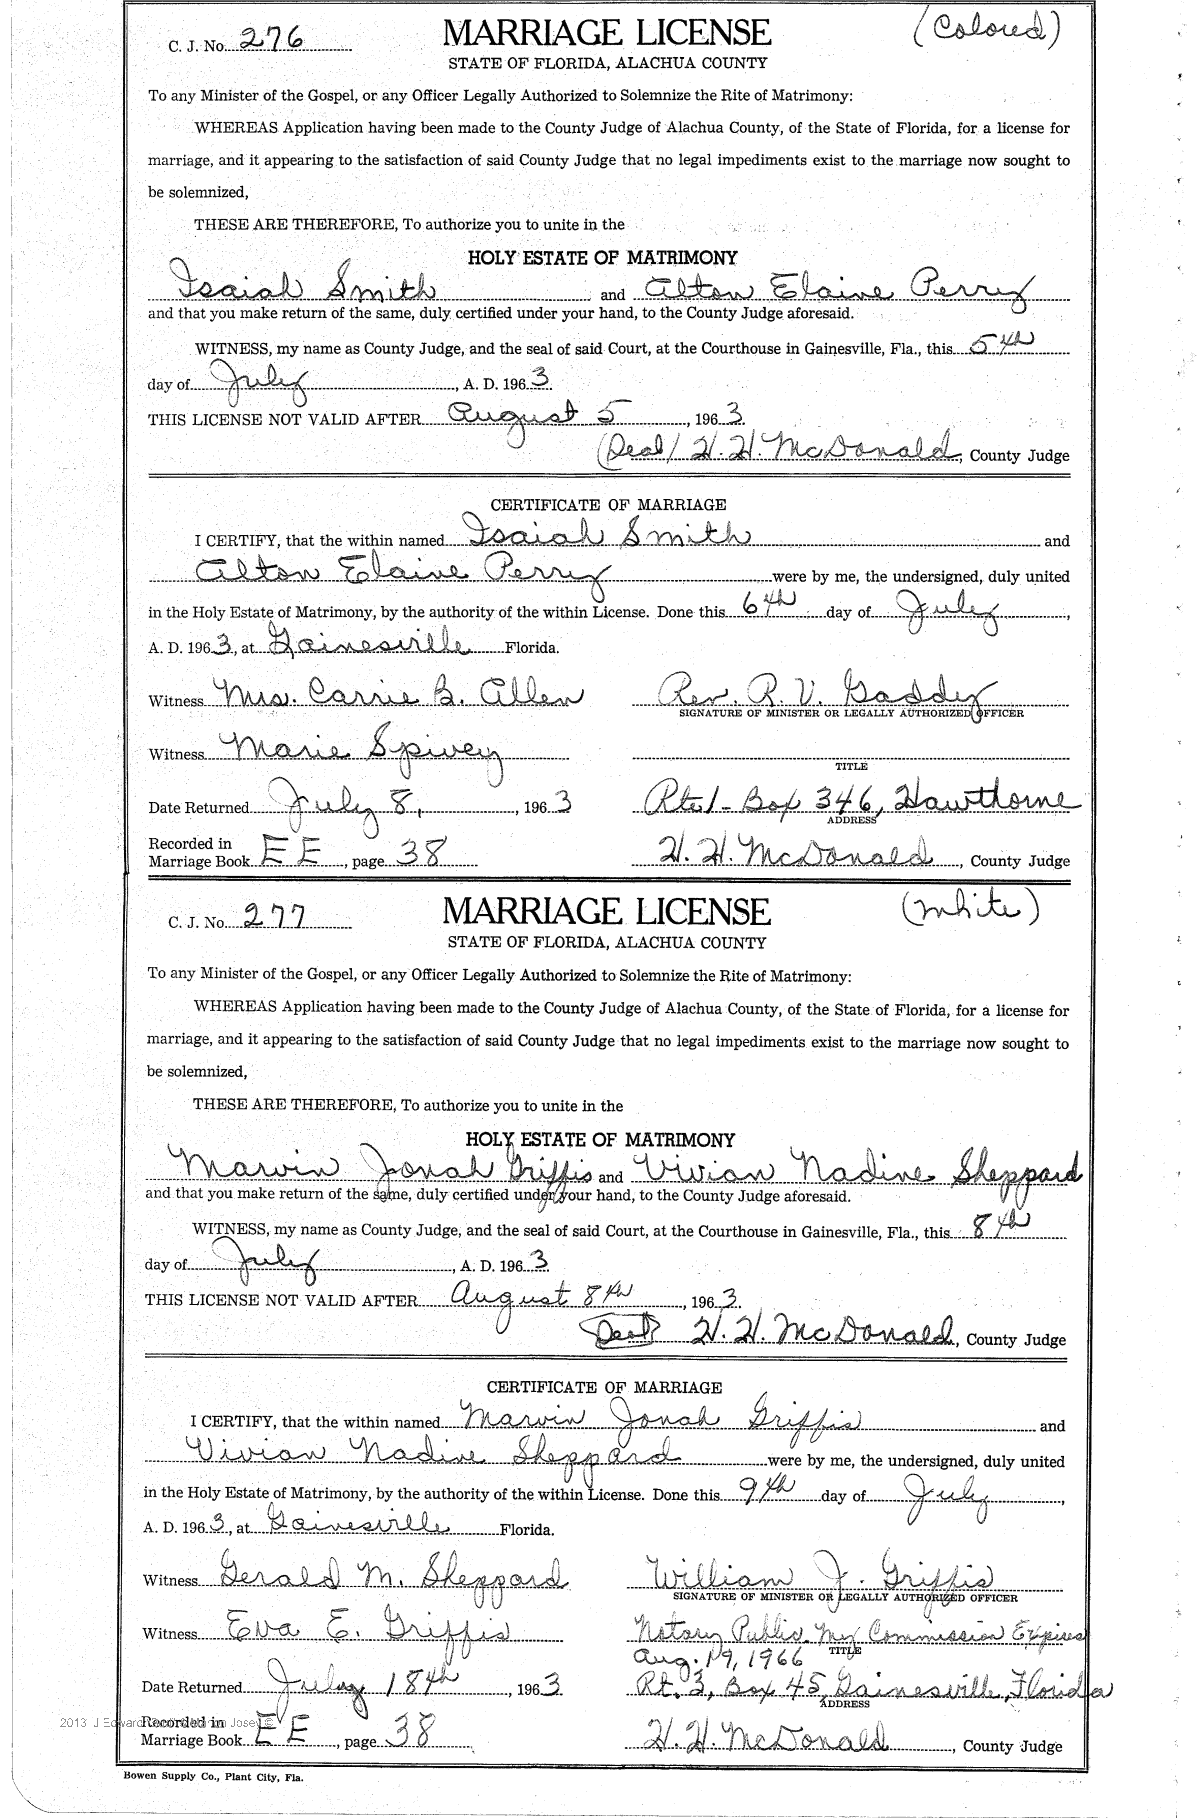 C. J. No. 276 MARRIAGE LICENSE (Colored)
STATE OF FLORIDA, ALACHUA COUNTY
To any Minister of the Gospel, or any Officer Legally Authorized to Solemnize the Rite of Matrimony:
WHEREAS Application having been made to the County Judge of Alachua County, of the State of Florida, for a license for
marriage, and it appearing to the satisfaction of said County Judge that no legal impediments exist to the marriage now sought to
be solemnized,
THESE ARE THEREFORE, To authorize you to unite in the
HOLY ESTATE OF MATRIMONY
Isaiah Smith and Alton Elaine Perry
and that you make return of the same, duly certified under your hand, to the County Judge aforesaid.
WITNESS, my name as County Judge, and the seal of said Court, at the Courthouse in Gainesville, Fla., this 5th
day of July, A. D. 1963.
THIS LICENSE NOT VALID AFTER August 5, 1963.
(Seal) H. H. McDonald, County Judge
CERTIFICATE OF MARRIAGE
I CERTIFY, that the within named Isaiah Smith and
Alton Elaine Perry were by me, the undersigned, duly united
in the Holy Estate of Matrimony, by the authority of the within License. Done this 6th day of July,
A. D. 1963, at Gainesville Florida.
Witness Mrs. Carrie B. Allen Rev. R. V. Gaddy
SIGNATURE OF MINISTER OR LEGALLY AUTHORIZED OFFICER
Witness Marie Spivey
TITLE
Date Returned July 8, 1963 Rte 1 - Box 346, Hawthorne
ADDRESS
Recorded in
Marriage Book EE, page 38 H. H. McDonald, County Judge
C. J. No. 277 MARRIAGE LICENSE (White)
STATE OF FLORIDA, ALACHUA COUNTY
To any Minister of the Gospel, or any Officer Legally Authorized to Solemnize the Rite of Matrimony:
WHEREAS Application having been made to the County Judge of Alachua County, of the State of Florida, for a license for
marriage, and it appearing to the satisfaction of said County Judge that no legal impediments exist to the marriage now sought to
be solemnized,
THESE ARE THEREFORE, To authorize you to unite in the
HOLY ESTATE OF MATRIMONY
Marvin Jonah Griffis and Vivian Nadine Sheppard
and that you make return of the same, duly certified under your hand, to the County Judge aforesaid.
WITNESS, my name as County Judge, and the seal of said Court, at the Courthouse in Gainesville, Fla., this 8th
day of July, A. D. 1963.
THIS LICENSE NOT VALID AFTER August 8th, 1963.
(Seal) H. H. McDonald, County Judge
CERTIFICATE OF MARRIAGE
I CERTIFY, that the within named Marvin Jonah Griffis and
Vivian Nadine Sheppard were by me, the undersigned, duly united
in the Holy Estate of Matrimony, by the authority of the within License. Done this 9th day of July,
A. D. 1963, at Gainesville Florida.
Witness Gerald M. Sheppard William J. Griffis
SIGNATURE OF MINISTER OR LEGALLY AUTHORIZED OFFICER
Witness Eva E. Griffis Notary Public. My Commission Expires
Aug. 19, 1966 TITLE
Date Returned July 18th, 1963. Rt. 3, Box 45, Gainesville, Florida
ADDRESS
2013 J Edward
Recorded in
Marriage Book EE, page 38 H. H. McDonald, County Judge
Bowen Supply Co., Plant City, Fla.